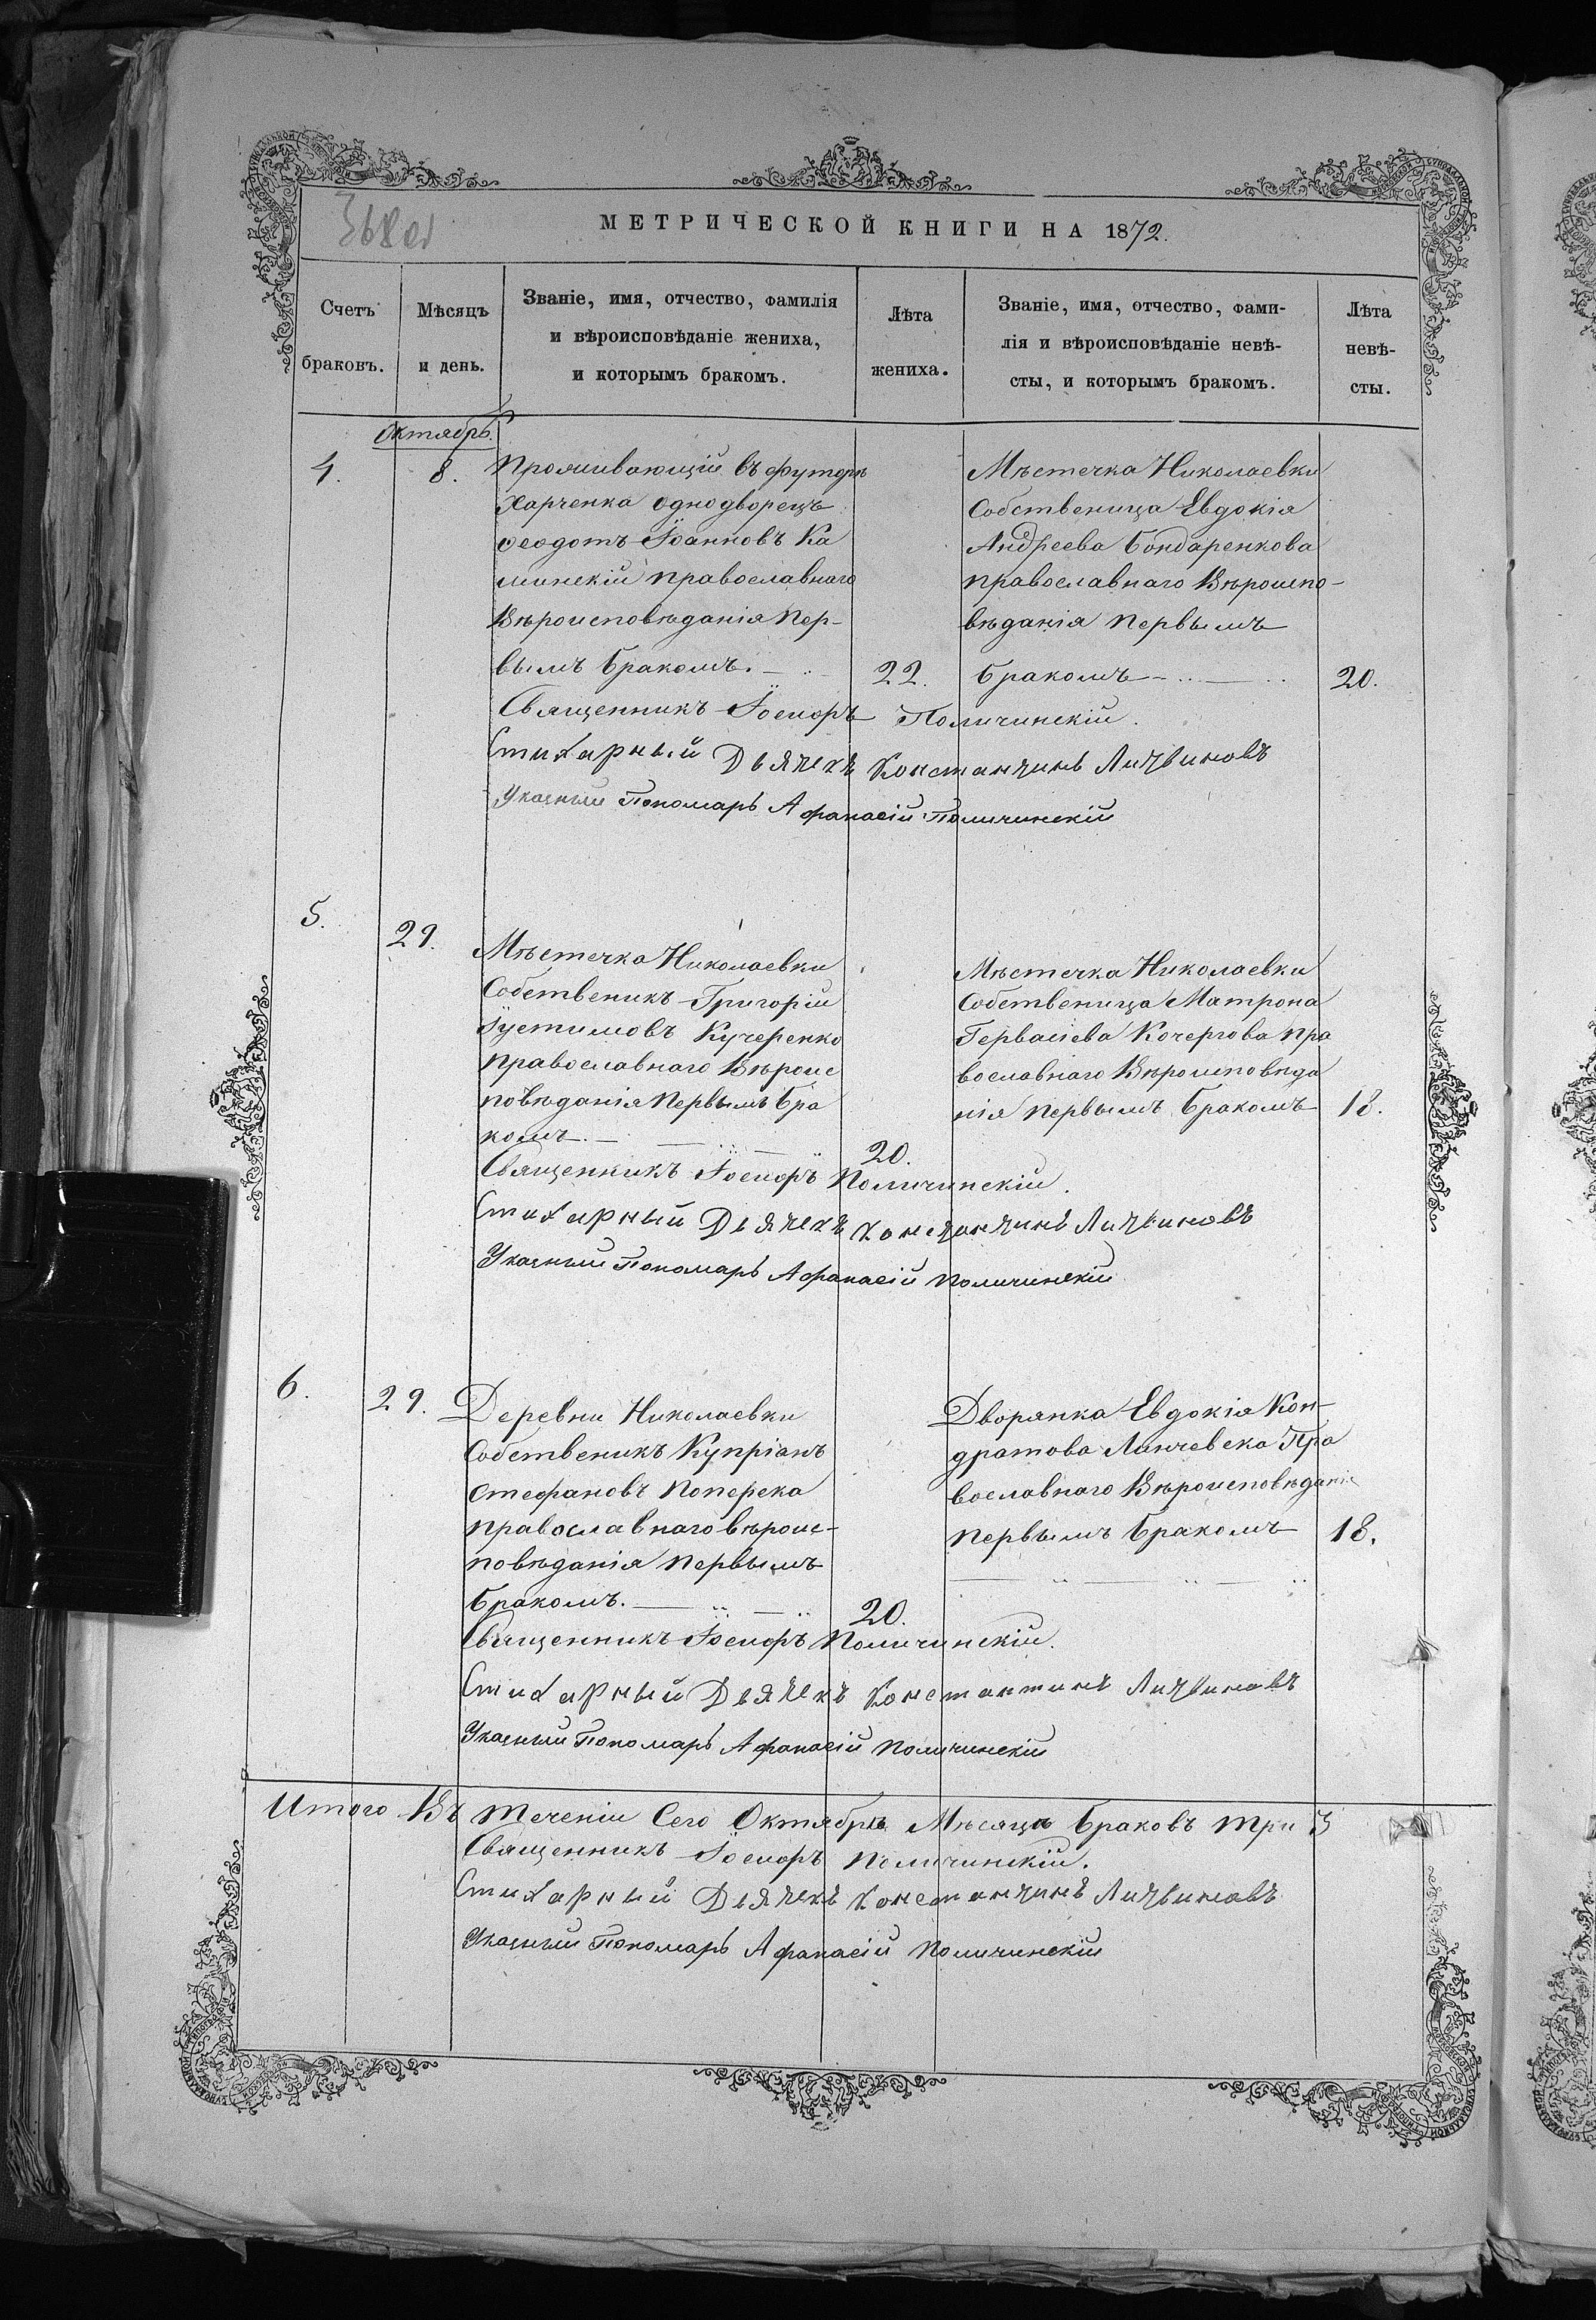 МЕТРИЧЕСКОЙ КНИГИ НА 1872.
Счетъ браковъ.
Мѣсяцъ и день.
Званіе, имя, отчество, фамилія
и вѣроисповѣданіе жениха,
и которымъ бракомъ.
Лѣта жениха.
Званіе, имя, отчество, фами-
лія и вѣроисповѣданіе невѣ-
сты, и которымъ бракомъ.
Лѣта невѣ-
сты.
Октябрь.
4. 8.
Проживающій въ футорѣ
Харченка однодворецъ
Ѳеодотъ Іоанновъ Ка
минскій православнаго
Вѣроисповѣданія пер-
вымъ бракомъ. 22.
Мѣстечка Николаевки
Собственица Евдокія
Андреева Бондаренкова
православнаго Вѣроиспо-
вѣданія первымъ
бракомъ 20.
Священникъ Іосифъ Поличинскій.
Стихарный Дьячекъ Константинъ Личвиновъ
Указный Пономарь Афанасій Поличинскій
5. 29.
Мѣстечка Николаевки
Собственикъ Григорій
Іустимовъ Кучеренко
православнаго Вѣроис
повѣданія первымъ бра
комъ. 20.
Мѣстечка Николаевки
Собственица Матрона
Гервасіева Кочергова пра
вославнаго Вѣроисповѣда
нія первымъ бракомъ 18.
Священникъ Іосифъ Поличинскій.
Стихарный Дьячекъ Константинъ Личвиновъ
Указный Пономарь Афанасій Поличинскій
6. 29.
Деревни Николаевки
Собственикъ Купріанъ
Стефановъ Поперека
православнаго вѣроис-
повѣданія первымъ
бракомъ. 20.
Дворянка Евдокія Кон-
дратова Линчевска Пра
вославнаго Вѣроисповѣданія
первымъ бракомъ 18.
Священникъ Іосифъ Поличинскій.
Стихарный Дьячекъ Константинъ Личвиновъ
Указный Пономарь Афанасій Поличинскій
Итого Въ теченіи Сего Октября Мѣсяца браковъ три 3
Священникъ Іосифъ Поличинскій.
Стихарный Дьячекъ Константинъ Личвиновъ
Указный Пономарь Афанасій Поличинскій